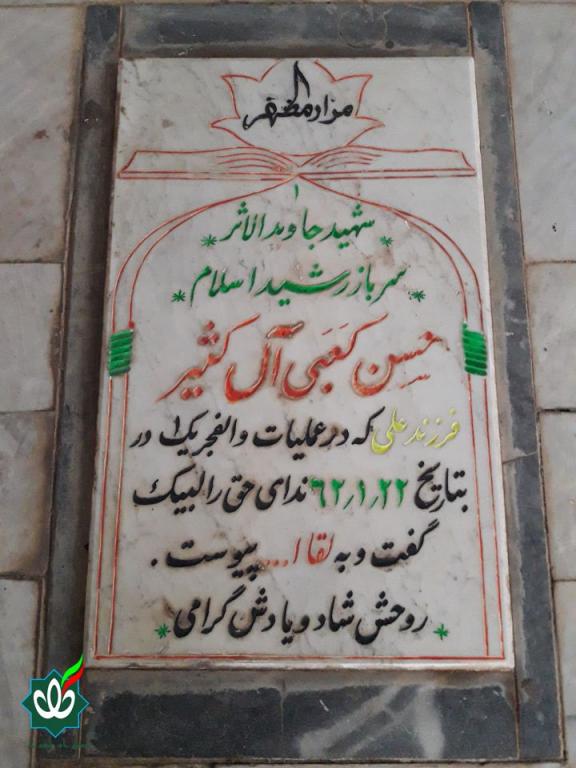 مزار مطهر
شهید جاویدالاثر
سرباز رشید اسلام
حسن کعبی آل کثیر
فرزند علی که در عملیات والفجر یک ۱ در
بتاریخ ۶۲٫۱٫۲۲ ندای حق را لبیک
گفت و به لقا ا... پیوست .
روحش شاد و یادش گرامی